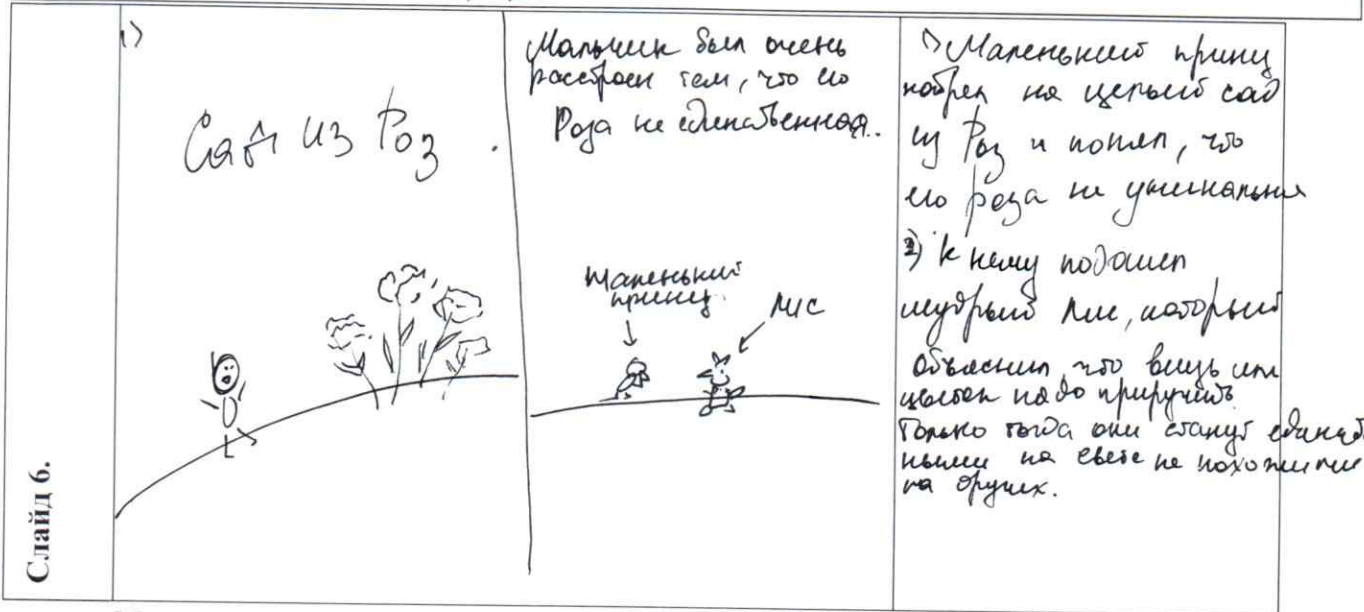 Слайд 6.
1)
Сад из Роз.
Мальчик был очень
расстроен тем, что его
Роза не единственная.
Маленький
принц
Лис
1) Маленький принц
набрел на целый сад
из Роз и понял, что
его роза не уникальна
2) К нему подошел
мудрый Лис, который
объяснил, что вещь или
цветок надо приручить
Только тогда они станут единст
ными на свете не похожими
на других.